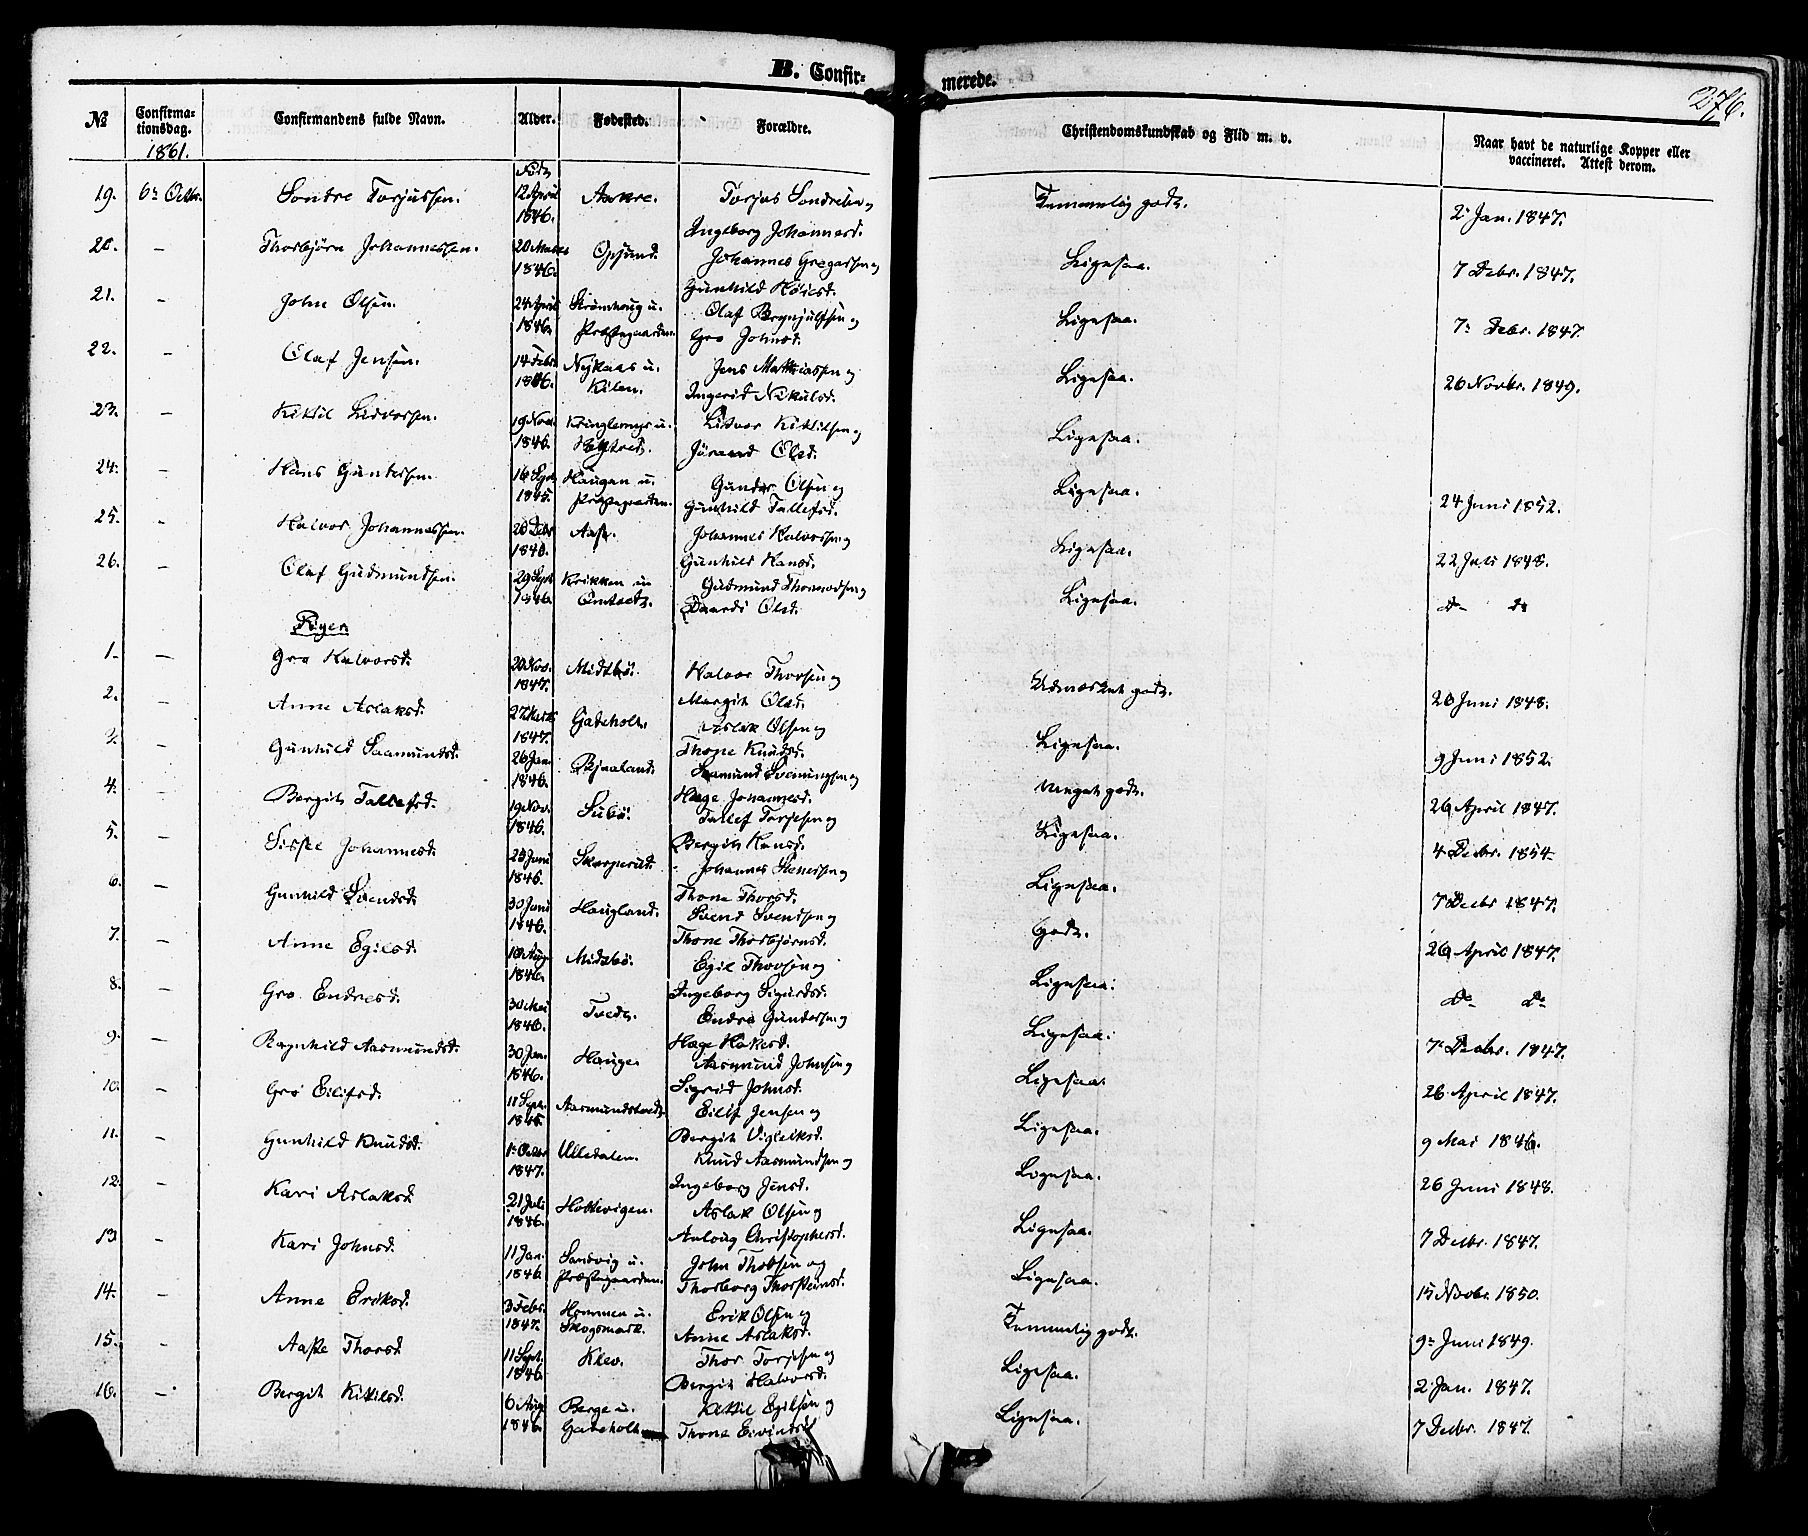 B. Confir-
merede.
276.
№
Confirma-
tionsdag.
1861.
Confirmandens fulde Navn.
Alder.
Fødested.
Forældre.
Christendomskundskab og Flid m. v.
Naar havt de naturlige Kopper eller
vaccineret. Attest derom.
19. 6te Octbr. Sondre Torjussen. 12 April 1846. Torjus Sondresen og Ingeborg Johannesd. Temmelig godt. 2 Jan. 1847.
20. – Thorbjörn Johannessen. 20 Marts 1846. Opsund. Johannes Gregarsen og Gunhild Høljesd. Ligesaa. 7 Decbr. 1847.
21. – John Olsen. 24 April 1846. Strömhaug u. Præstegaarden. Olaf Brynjulfsen og Gro Johnsd. Ligesaa. 7 Decbr. 1847.
22. – Olaf Jensen. 14 Febr. 1846. Nykaas u. Kilen. Jens Mathiassen og Ingerid Nikulsd. Ligesaa. 26 Novbr. 1849.
23. – Kittil Lidvorsen. 19 Nov. 1846. Lidvor Kittilsen og Olsd. Ligesaa.
24. – Hans Gundersen. 16 Sept. 1845. Haugen u. Præstegaarden. Gunder Olsen og Gunhild Tallefsd. Ligesaa. 24 Juni 1852.
25. – Halvor Johannessen. Johannes Halvorsen og Gunhild Hansd. Ligesaa. 22 Juli 1848.
26. – Olaf Gudmundsen. 29 Sept. 1846. Krikken u. Gudmund Thormodsen og Olsd. Ligesaa. do do
Piger
1. – Gro Halvorsd. 20 Nov. 1847. Midtbö. Halvor Thorsen og Margit Olsd. Udmærket godt. 26 Juni 1848.
2. – Anne Aslaksd. 27 Marts 1847. Gateholt. Aslak Olsen og Thone Knudsd. Ligesaa. 9 Juni 1852.
3. – Gunhild Saamundsd. 26 Jan. 1846. Bjaaland. Saamund Sveinungsen og Hæge Johannesd. Meget godt. 26 April 1847.
4. – Bergit Tallefsd. 19 Nov. 1846. Sübö. Tallef Torjesen og Bergit Hansd. Ligesaa. 4 Decbr. 1854.
5. – Sissel Johannesd. 23 Juni 1846. Skarperud. Johannes Stenersen og Thone Thorsd. Ligesaa. 7 Decbr 1847.
6. – Gunhild Svendsd. 30 Juni 1846. Haugland. Svend Svendsen og Thone Thorbjörnsd. Godt. 26 April 1847.
7. – Anne Egilsd. 10 Aug 1846. Midtbö. Egil Thorsen og Ingeborg Sigurdsd. Ligesaa. do do
8. – Gro Endresd. 30 Mai 1846. Tvedt. Endre Gundersen og Hæge Hakesd. Ligesaa. 7 Decbr. 1847.
9. – Ragnhild Aasmundsd. 30 Jan. 1846. Hauge. Aasmund Johnsen og Sigrid Johnsd. Ligesaa. 26 April 1847.
10. – Gro Eilifsd. 11 Sept. 1845. Aasmundstvedt. Eilif Jensen og Bergit Vigleiksd. Ligesaa. 9 Mai 1846.
11. – Gunhild Knudsd. 1 Octbr 1847. Ulledalen. Knud Aasmundsen og Ingeborg Jensd. Ligesaa. 26 Juni 1848.
12. – Kari Aslaksd. 21 Juli 1846. Hottevigen. Aslak Olsen og Anloug Christophersd. Ligesaa. 7 Decbr. 1847.
13. – Kari Johnsd. 11 Jan. 1846. Sandvig u. Præstegaarden. John Thorsen og Thorborg Thorsteinsd. Ligesaa. 15 Novbr. 1850.
14. – Anne Eriksd. 3 Febr. 1847. Hommen u. Skogsmark. Erik Olsen og Anne Aslaksd. Temmelig godt. 9 Juni 1849.
15. – Aaste Thorsd. 11 Sept. 1846. Klev. Thor Torjesen og Bergit Halvorsd. Ligesaa. 2 Jan. 1847.
16. – Bergit Kittilsd. 6 Aug 1846. Berge u. Gateholt. Kittil Egilsen og Thone Eivindsd. Ligesaa. 7 Decbr. 1847.